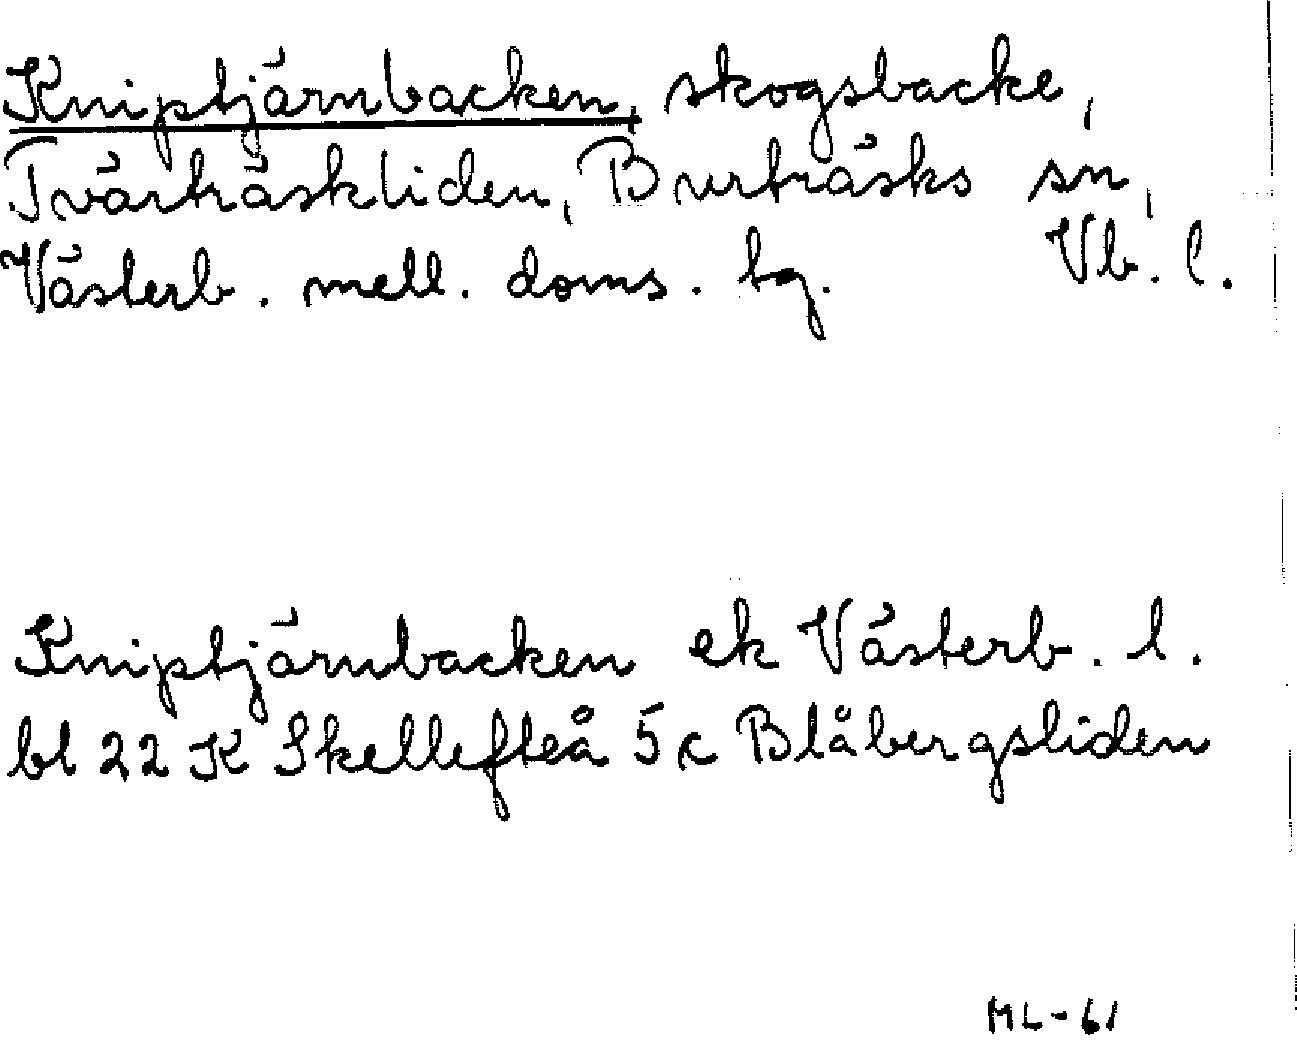 Kniptjärnbacken, skogsbacke,
Tvärträskliden, Burträsks sn,
Västerb. mell. doms. tg. Vb. l.
Kniptjärnbacken ek Västerb. l.
bl 22 K Skellefteå 5c Blåbergsliden
ML-61